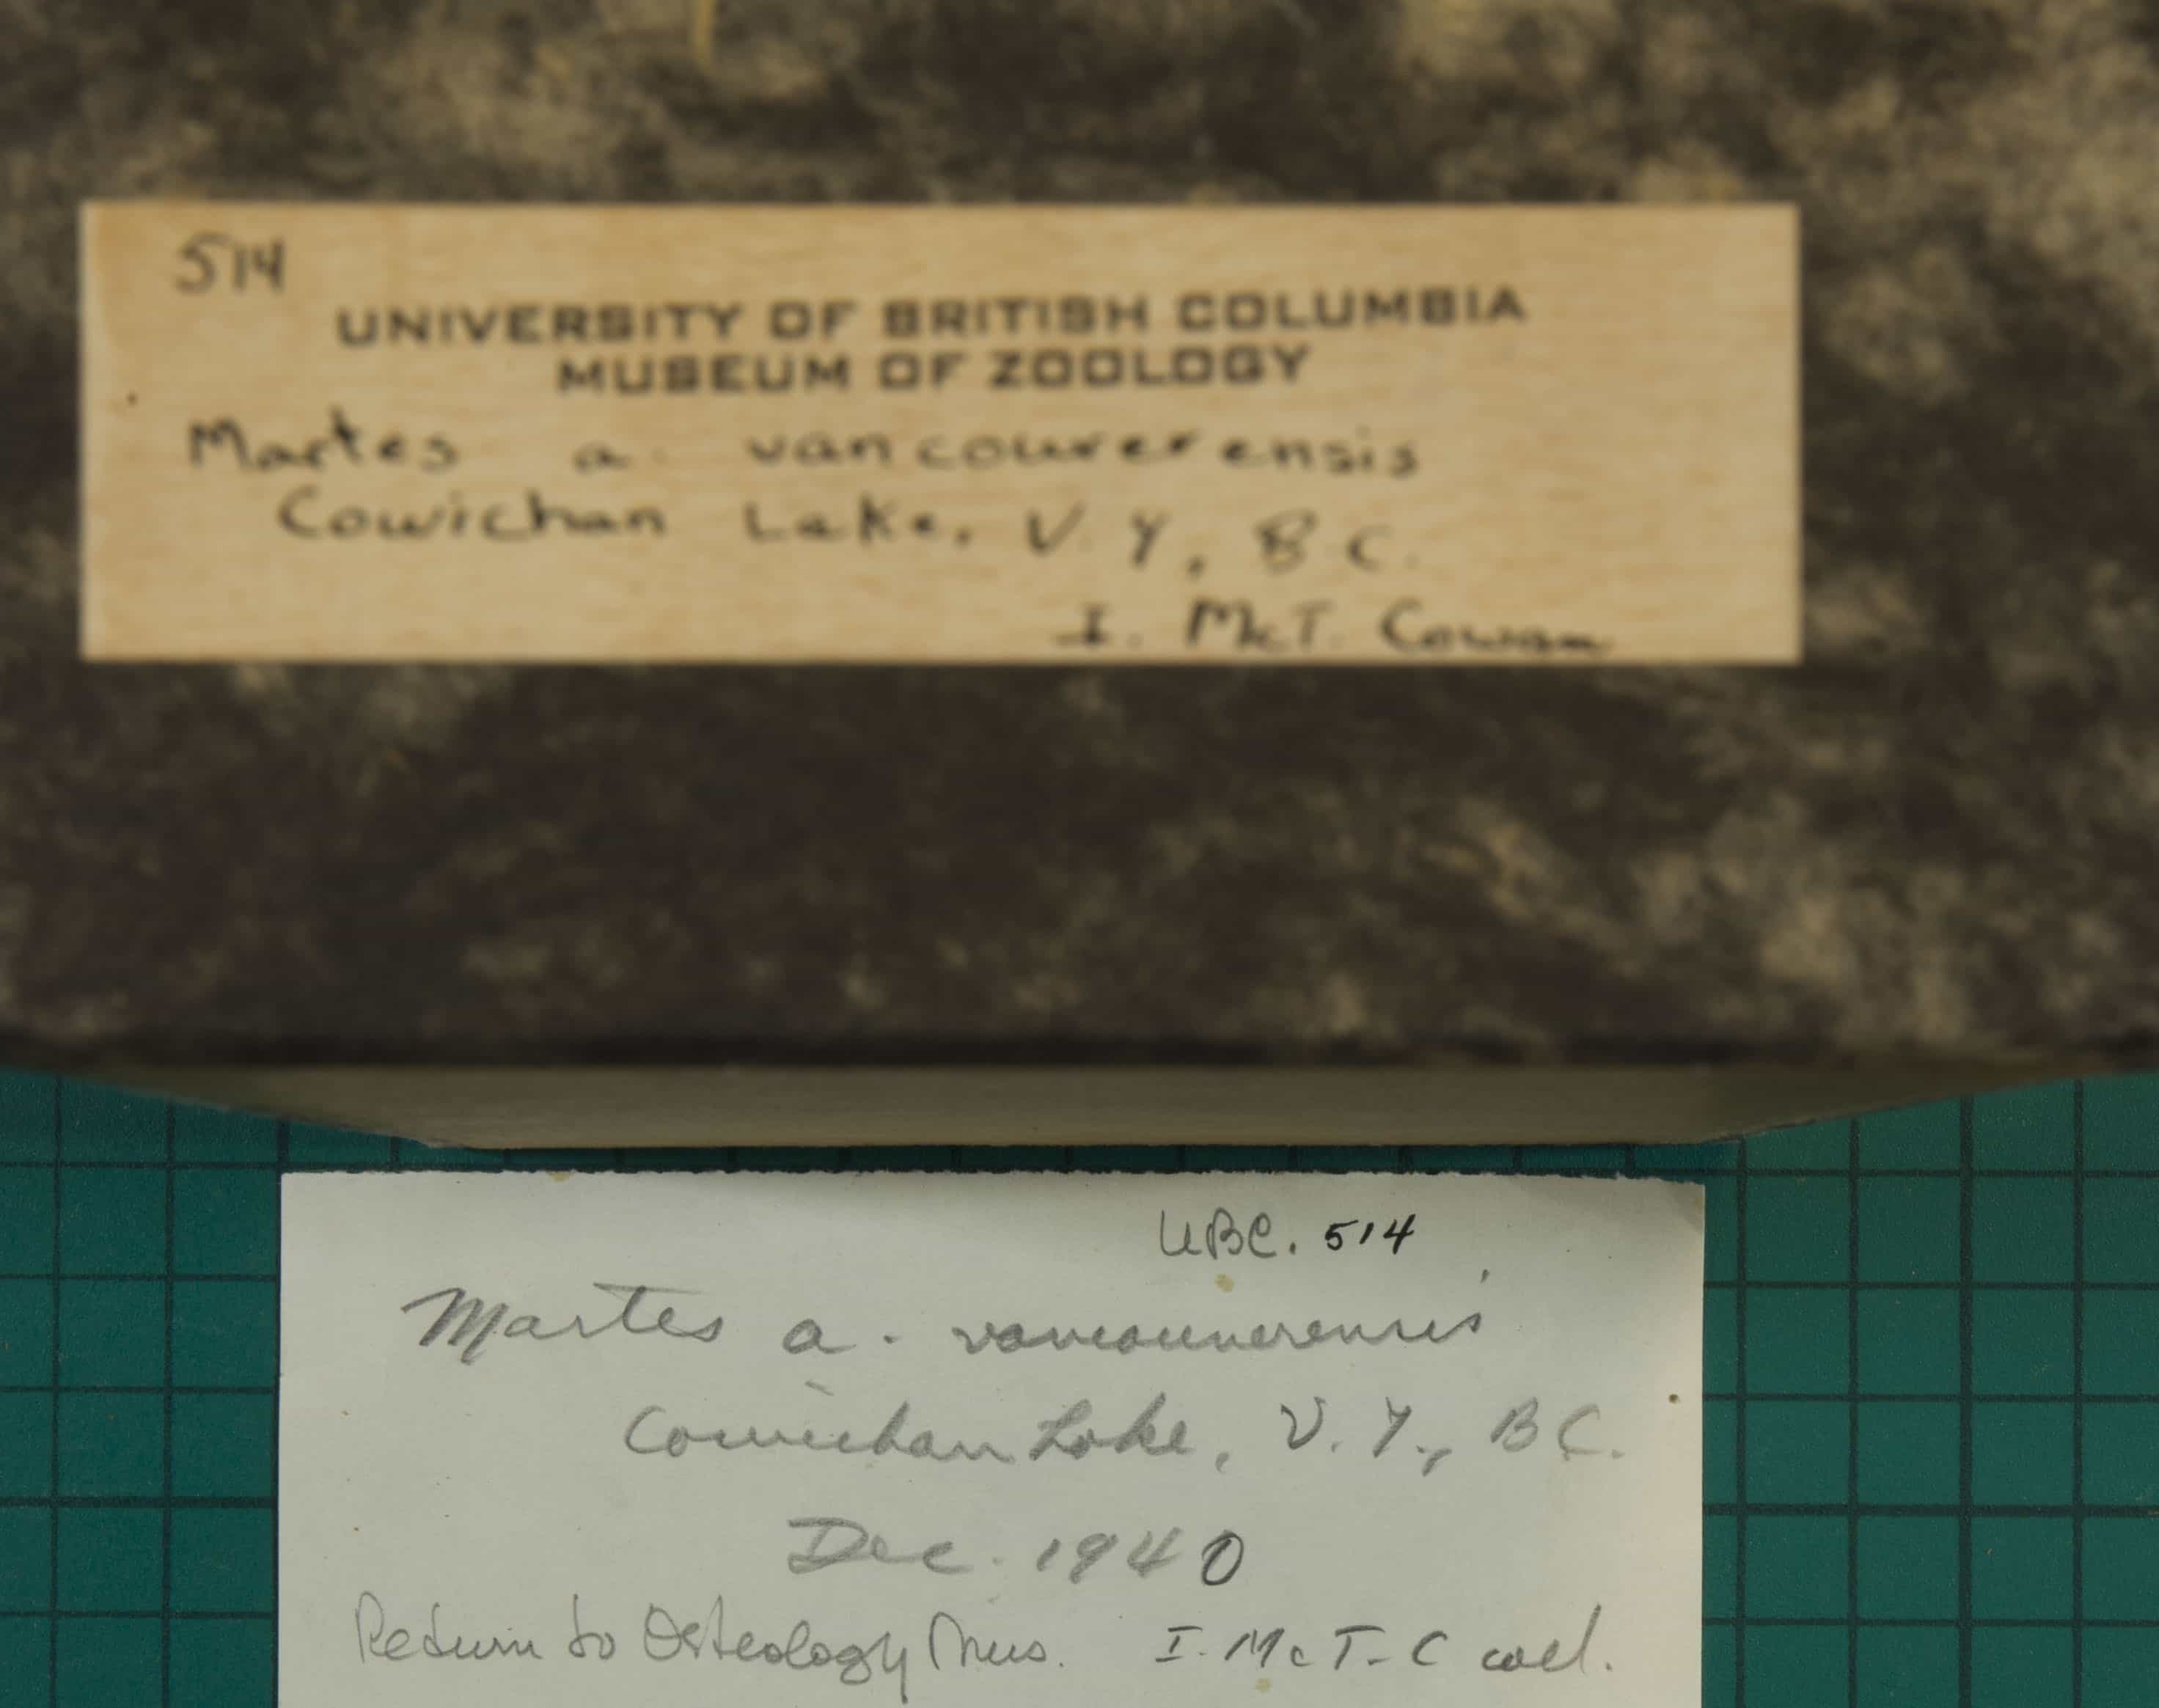 514
UNIVERSITY OF BRITISH COLUMBIA
MUSEUM OF ZOOLOGY
Martes a. vancouverensis
Cowichan Lake, V. Y, B C.
I. McT. Cowan
UBC. 514
Martes a. vancouverensis
Cowichan Lake, V. Y., B C.
Dec. 1940
Return to Osteology Mus. I. McT-C coll.